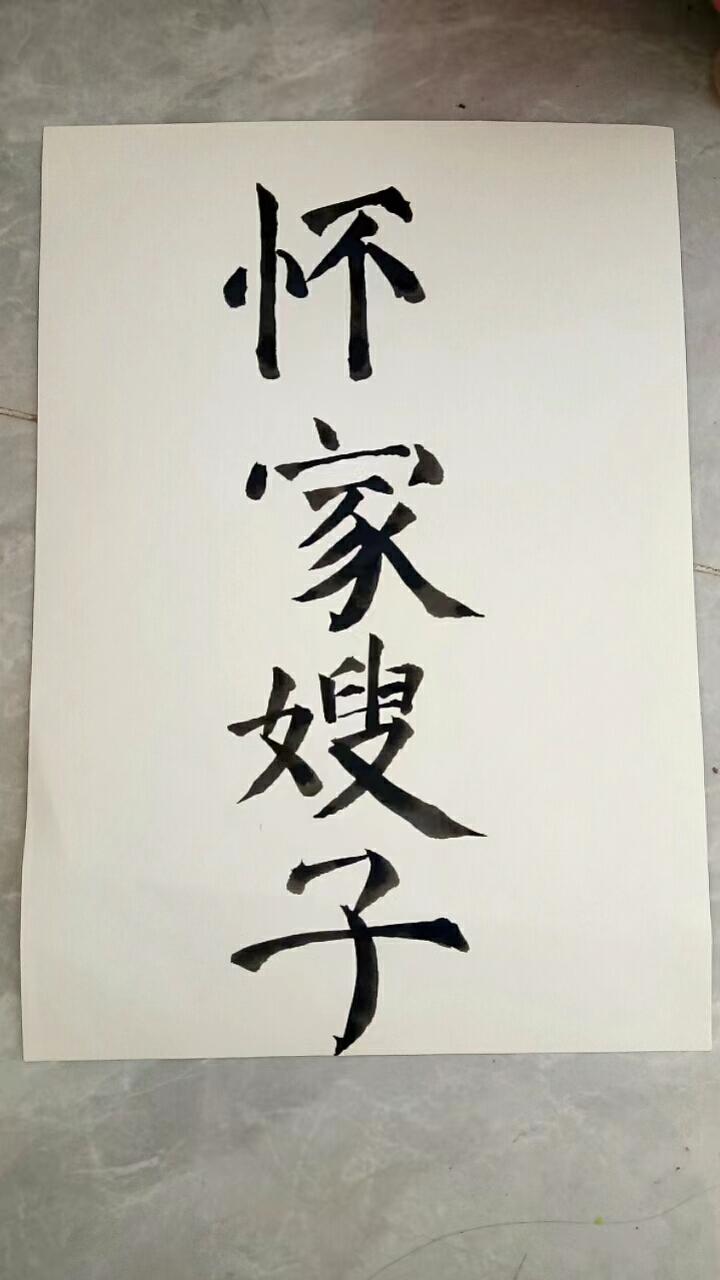 怀家嫂子